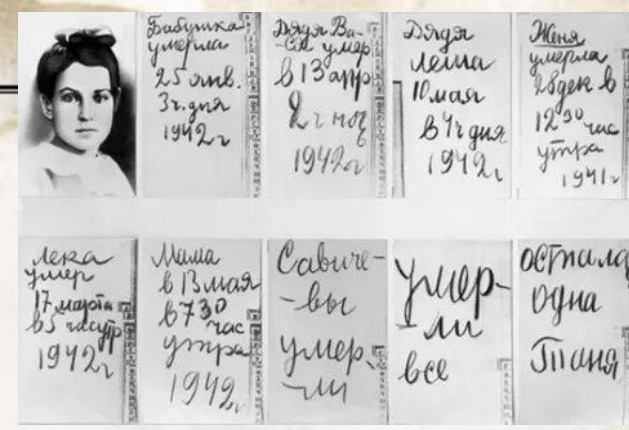 Бабушка
умерла
25 янв.
3ч. дня
1942г
Дядя Ва-
ся умер
в 13 апр
2ч ноч
1942г
Дядя
Леша
10 мая
в 4ч дня
1942г
Женя
умерла
28 дек в
12 30 час
утра
1941г
Лека
умер
17 марта
в 5 час утр
1942г
Мама
в 13 мая
в 7 30
час
утра
1942г
Савиче-
-вы
умер-
-ли
умер-
-ли
все
остала
одна
Таня